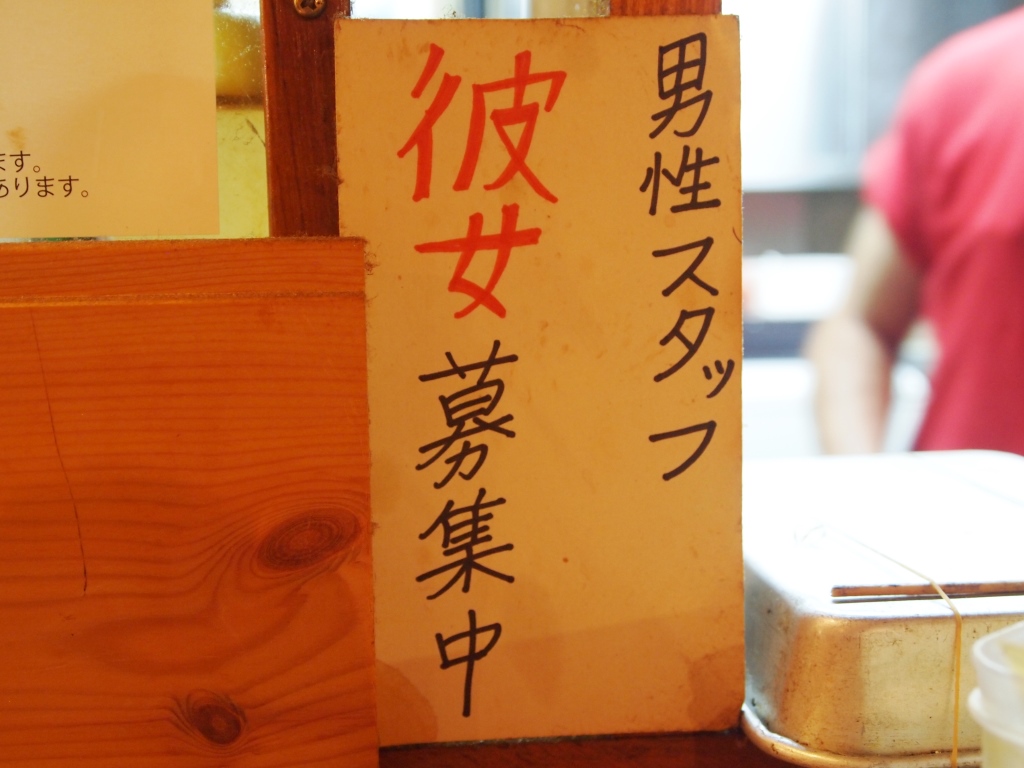 男性スタッフ
彼女募集中
ます。
あります。